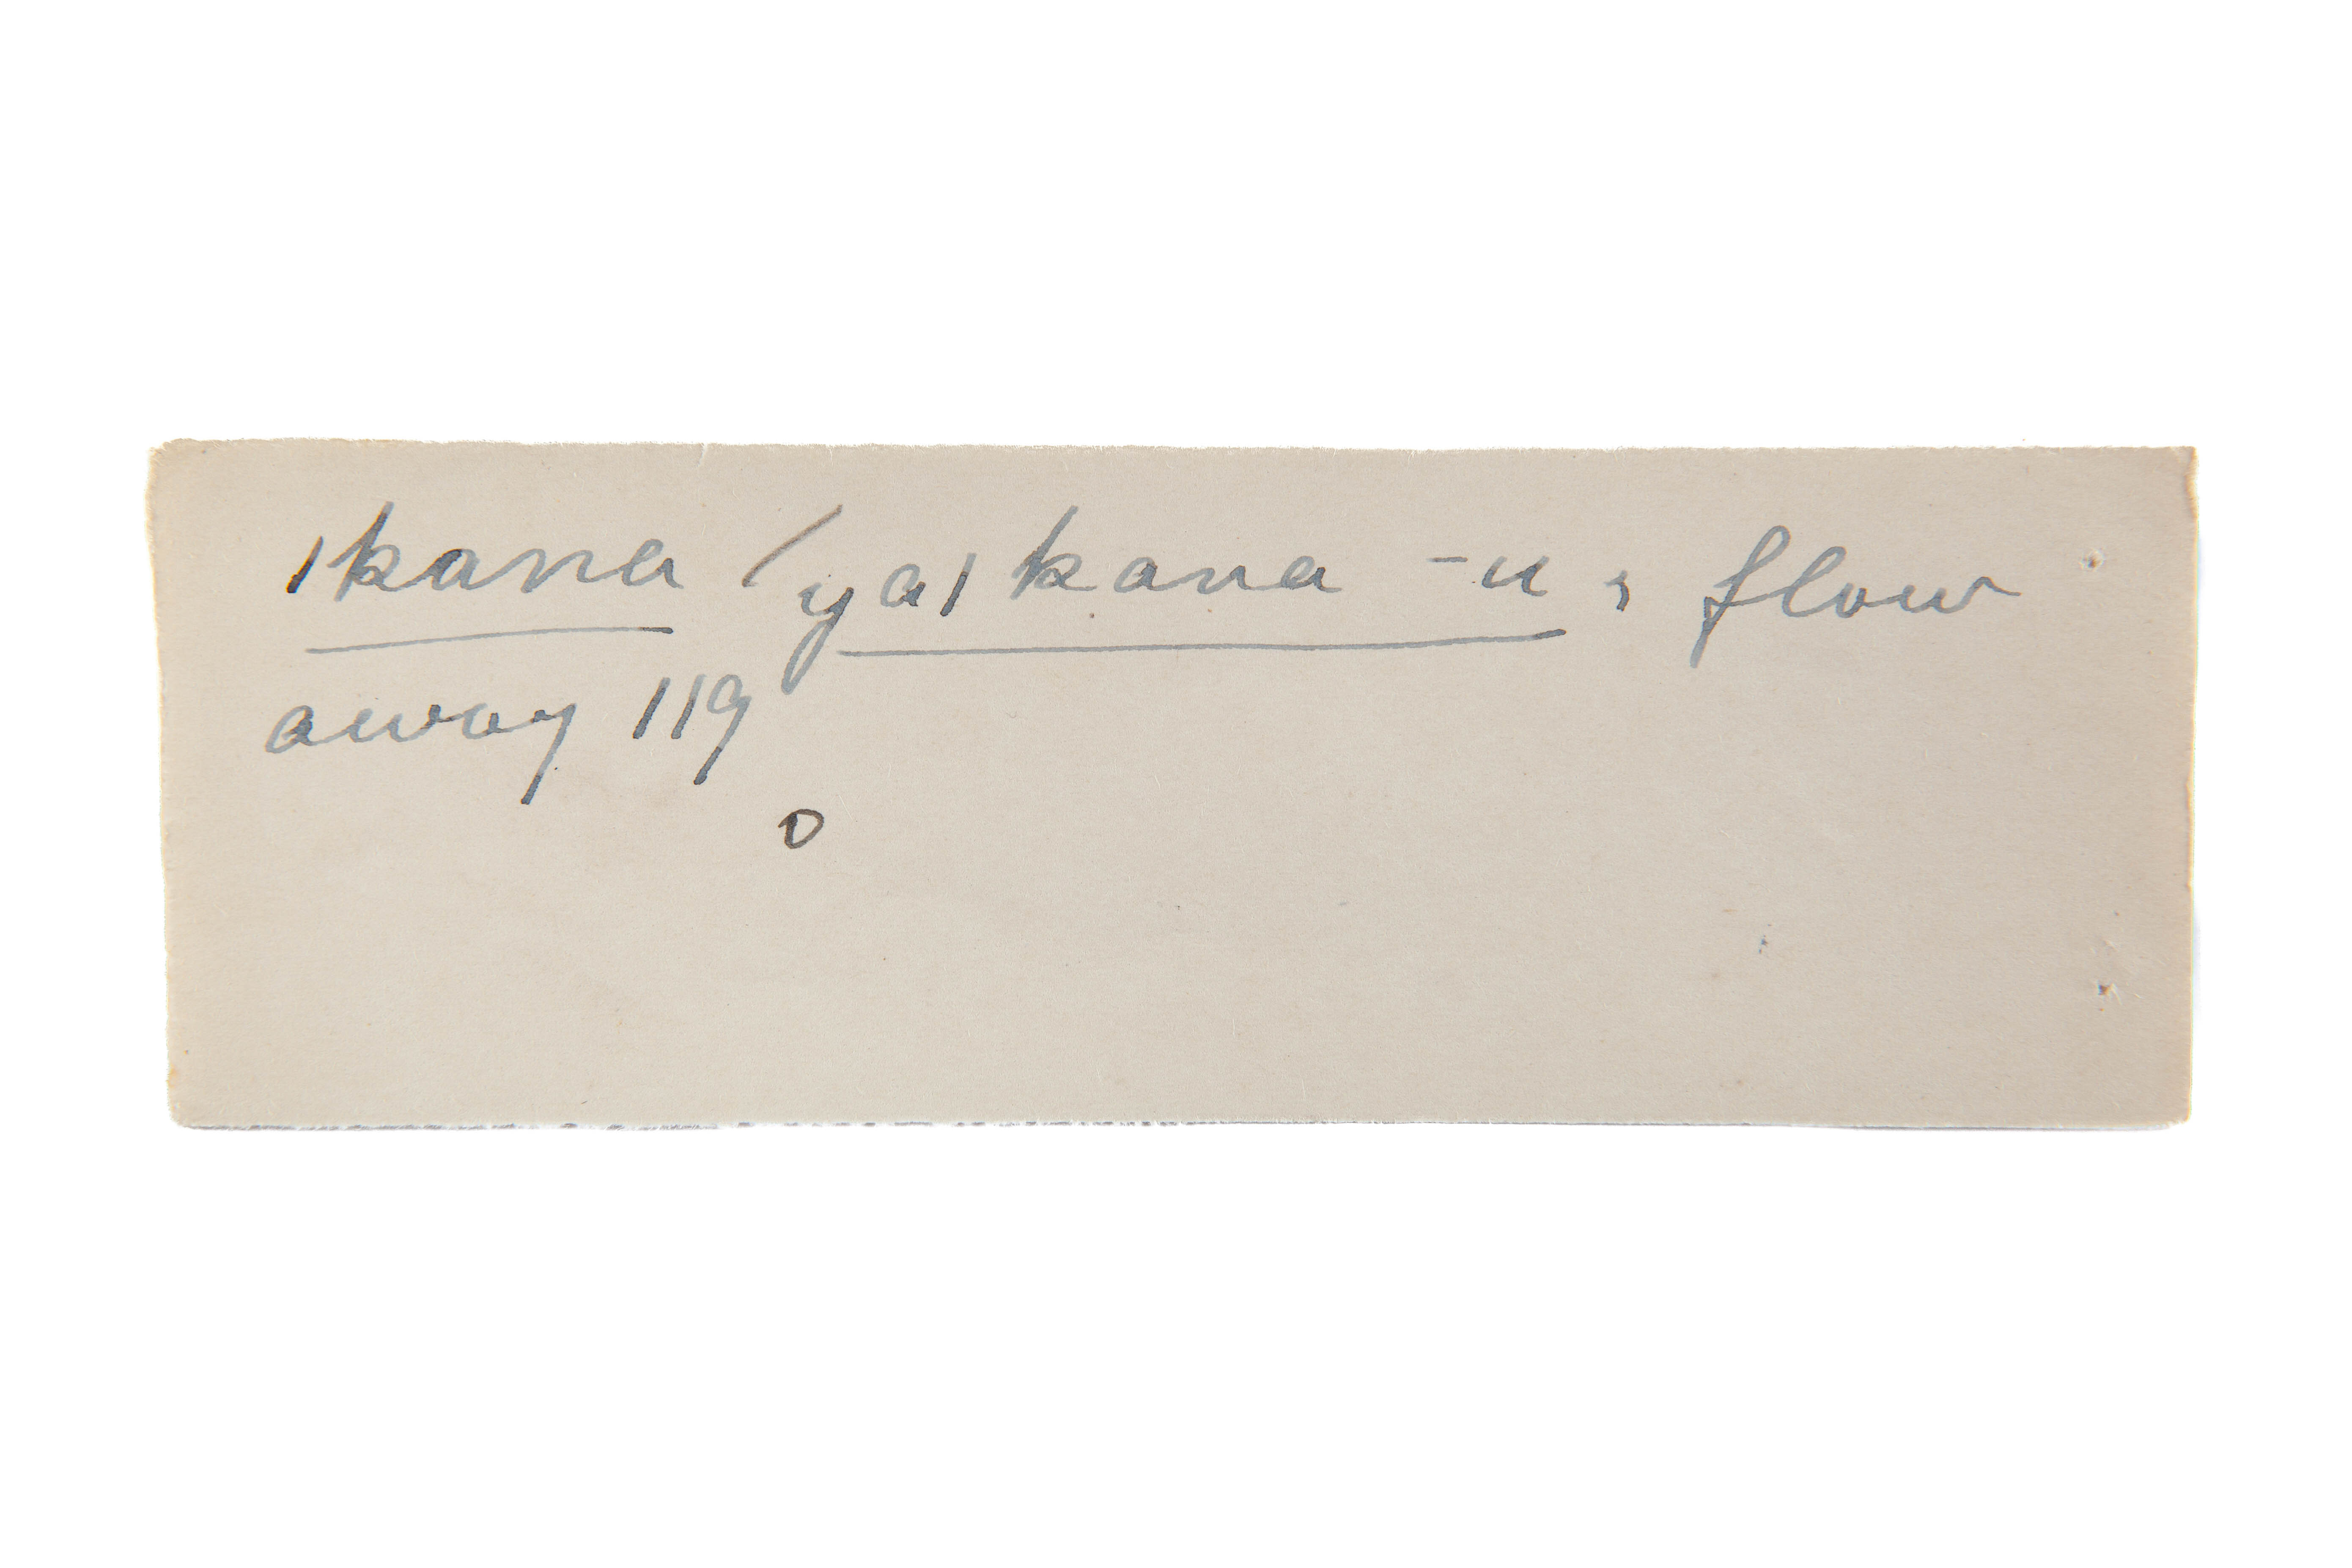 ikana / yaikana -u, flow
away 119
o